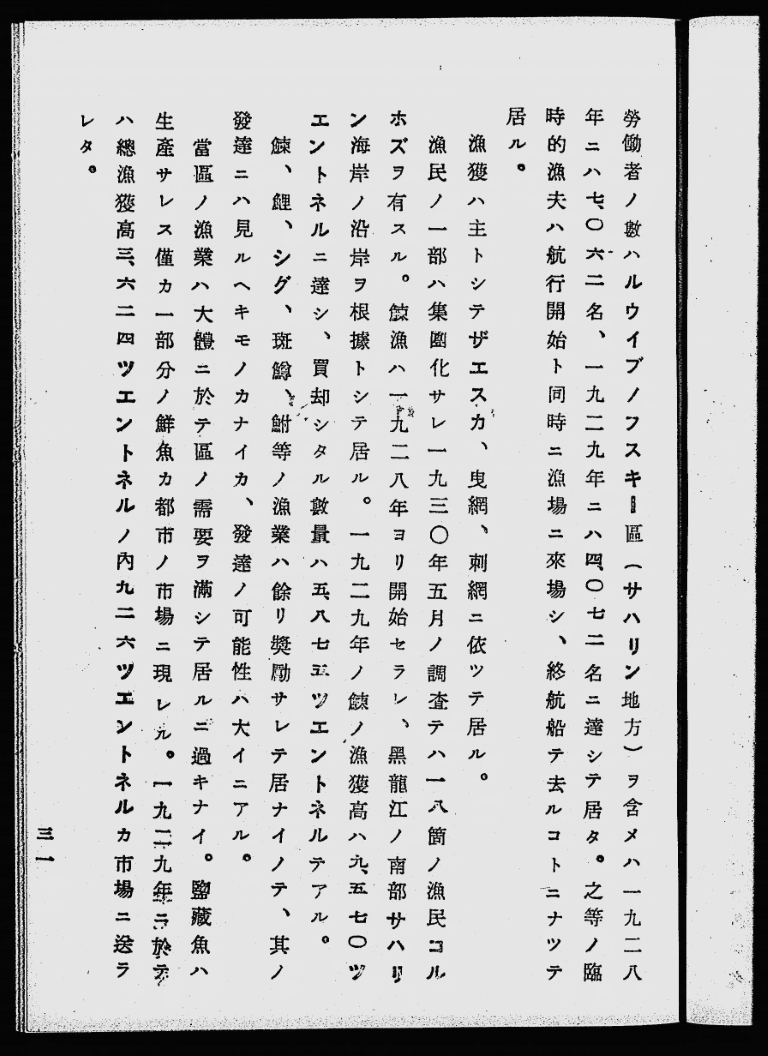 勞働者ノ數ハルウイブノフスキー區（サハリン地方）ヲ含メハ一九二八
年ニハ七、〇六二名、一九二九年ニハ四、〇七二名ニ達シテ居タ。之等ノ臨
時的漁夫ハ航行開始ト同時ニ漁場ニ來場シ、終航船テ去ルコトニナツテ
居ル。
漁獲ハ主トシテザエスカ、曳網、刺網ニ依ツテ居ル。
漁民ノ一部ハ集團化サレ一九三〇年五月ノ調査テハ一八箇ノ漁民コル
ホズヲ有スル。鰊漁ハ一九二八年ヨリ開始セラレ、黑龍江ノ南部サハリ
ン海岸ノ沿岸ヲ根據トシテ居ル。一九二九年ノ鰊ノ漁獲高ハ九、五七〇ツ
エントネルニ達シ、買却シタル數量ハ五、八七五ツエントネルテアル。
鰊、鯉、シグ、斑鱒、鮒等ノ漁業ハ餘リ獎勵サレテ居ナイノテ、其ノ
發達ニハ見ルヘキモノカナイカ、發達ノ可能性ハ大イニアル。
當區ノ漁業ハ大體ニ於テ區ノ需要ヲ滿シテ居ルニ過キナイ。鹽藏魚ハ
生產サレス僅カ一部分ノ鮮魚カ都市ノ市場ニ現レル。一九二九年ニ於テ
ハ總漁獲高三、六二四ツエントネルノ內九二六ツエントネルカ市場ニ送ラ
レタ。
三一